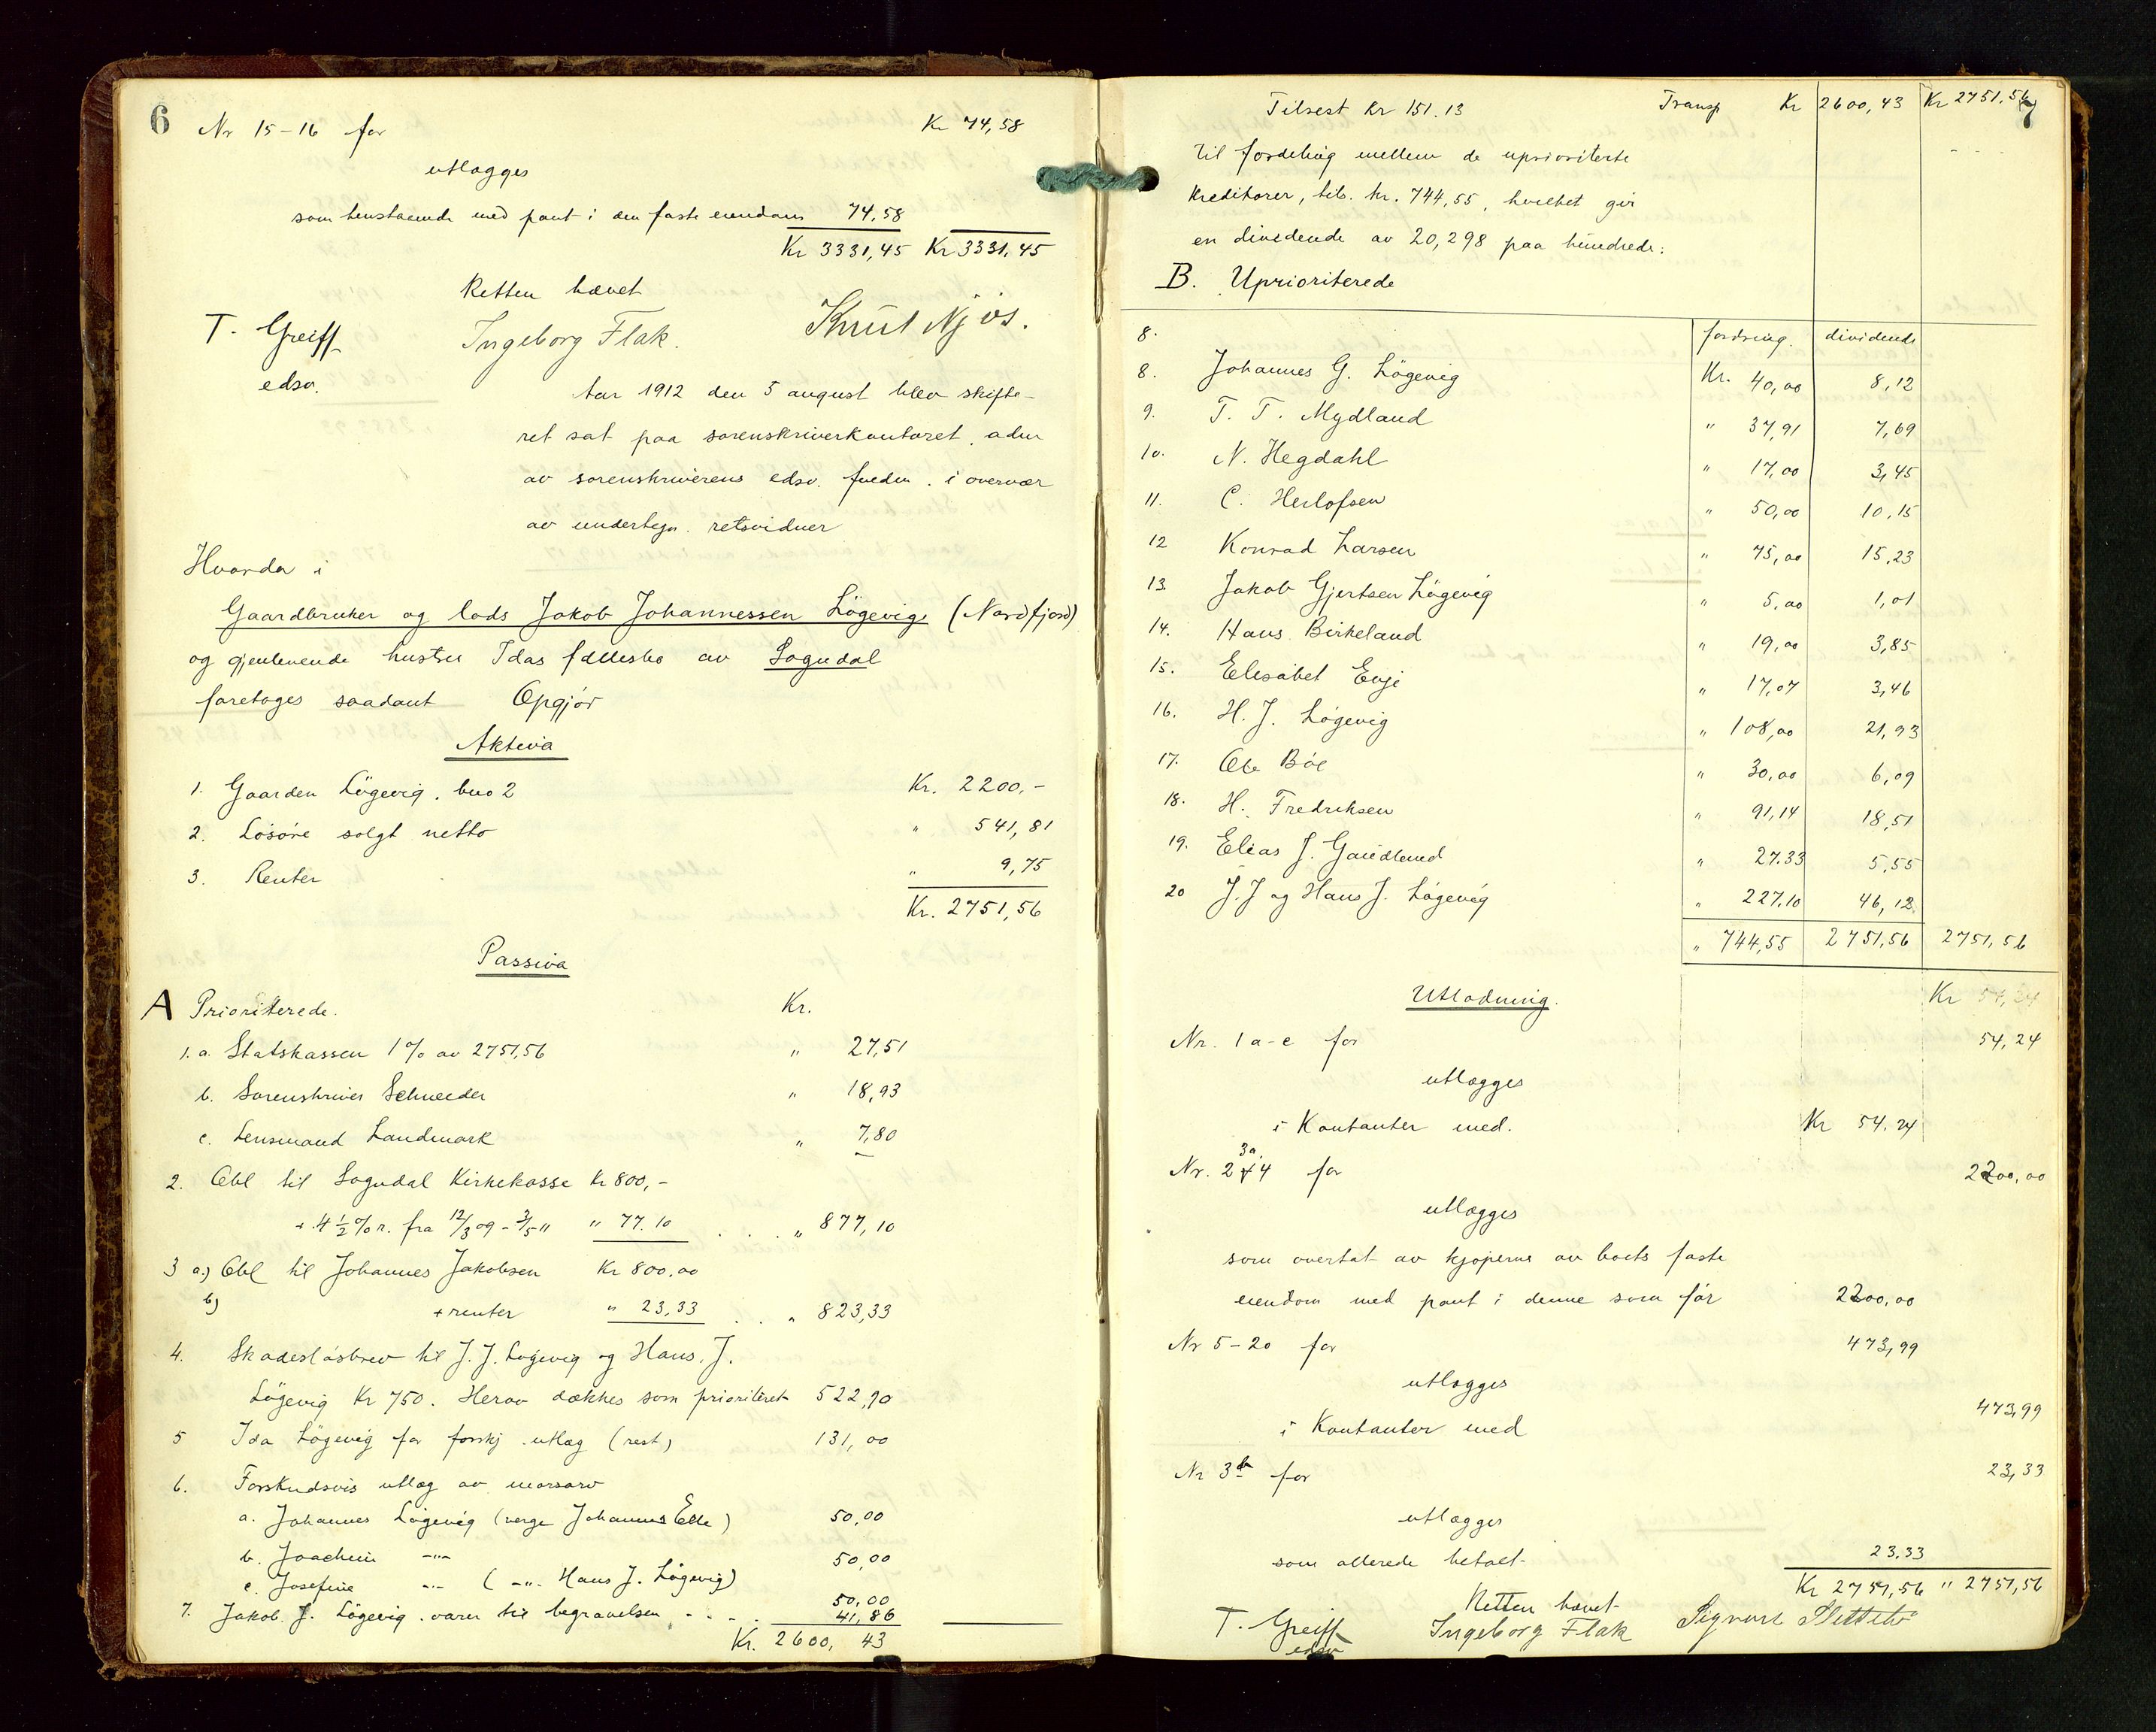 6
Nr 15-16 for Kr 74,58
utlægges
som henstaaende med pant i den faste eiendom 74,58
Kr 3331,45 Kr 3331,45
Retten hævet
T. Greiff Ingeborg Flak. Knut Njøs.
edsv.
Aar 1912 den 5 august blev skifte-
ret sat paa sorenskriverkontoret, adm
av sorenskriverens edsv. fuldm. i overvær
av undertegn. retsvidner
Hvorda i
Gaardbruker og lods Jakob Johannessen Løgevigs (Nordfjord)
og gjenlevende hustru Idas fællesbo av Sogndal
foretoges saadant Opgjør
Aktiva
1. Gaarden Løgevig, bno 2 Kr. 2200,-
2. Løsøre solgt netto " 541,81
3. Renter " 9,75
Kr. 2751,56
Passiva
A Prioriterede. Kr.
1. a. Statskassen 1% av 2751,56 " 27,51
b. Sorenskriver Schneider " 18,93
c. Lensmand Landmark " 7,80
2. Obl til Sogndal Kirkekasse Kr 800,-
+ 4 1/2 % r. fra 12/3 09 - 3/5 11 " 77.10 . . . . " 877,10
3 a.) Obl til Johannes Jakobsen Kr 800,00
b) + renter " 23,33 . . " 823,33
4. Skadesløsbrev til J. J. Løgevig og Hans. J.
Løgevig Kr 750. Herav dækkes som prioriteret 522,90
5 Ida Løgevig for forskj. utlæg (rest) 131,00
6. Forskudsvis utlæg av morsarv
a. Johannes Løgevig (verge Johannes Elle) 50,00
b. Joachim -"- 50,00
c. Josefine -"- ( -"- Hans J. Løgevig) 50,00
7. Jakob. J. Løgevig. varer til begravelsen . . . . 41,86
Kr. 2600,43
7
Tilrest Kr 151.13 Transp Kr 2600,43 Kr 2751,56
til fordeling mellem de uprioriterte
Kreditorer, tils. kr. 744,55, hvilket gir
en dividende av 20,298 paa hundrede.
B. Uprioriterede
8. fordring. dividende
8. Johannes G. Løgevig Kr. 40,00 8,12
9. T. T. Mydland " 37,91 7,69
10. N. Hegdahl " 17,00 3,45
11. C. Herlofsen " 50,00 10,15
12 Konrad Larsen " 75,00 15,23
13 Jakob Gjertsen Løgevig " 5,00 1,01
14. Hans Birkeland " 19,00 3,85
15. Elisabet Evje " 17,07 3,46
16. H. J. Løgevig " 108,00 21,93
17. Ole Bøe " 30,00 6,09
18. H. Fredriksen " 91,14 18,51
19. Elias J. Gaudland " 27.33 5,55
20 J. J og Hans J. Løgevig " 227,10 46,12
" 744,55 2751,56 2751,56
Utlodning. Kr 54,24
Nr. 1 a-c for 54,24
utlægges
i Kontanter med. Kr 54.24
3a.
Nr. 2 + 4 for 2200,00
utlægges
som overtat av kjøperne av boets faste
eiendom med pant i denne som før 2200,00
Nr 5-20 for 473,99
utlægges
i Kontanter med 473,99
Nr 3b for 23,33
utlægges
som allerede betalt. 23.33
Kr 2751,56 " 2751,56
Retten hævet
T. Greiff Ingeborg Flak Sigvart
edsv